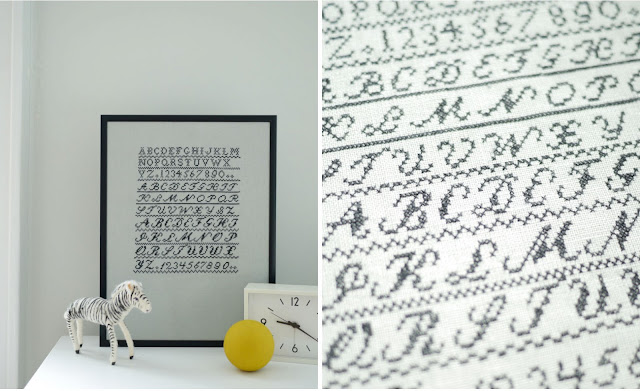 ABCDEFGHIJKLM
NOPQRSTUVWX
YZ.1234567890..
ABCDEFGHIJ
KLMNOPQR
STUVWXYZ
ABCDEFGH
IJKLMNOP
QRSTUVWX
YZ.1234567890..
11 12 1
2
3
4
OPQRSTUVWX
Z.1234567890.
ABCDEFGHI
LMNOP
TUVWXY
ABCDEFG
KLMN
QRSTU